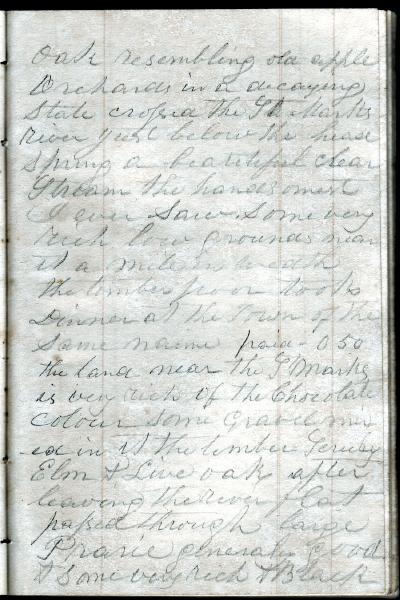 Oak resembling old apple
Orchards in a decaying
State crossed the St Marks
river just below the head
Spring a beautiful clear
Stream the handsomest
I ever Saw Some very
rich low grounds near
it a mile in width
the timber poor took
Dinner at the Town of the
Same name paid - 0 50
the land near the St Marks
is very rich of the Chocolate
Colour some Gravel mix
-ed in it the timber
Elm & Live oak after
leaving the river flat
passed through large
Prarie generaly good
& Some very rich & Black